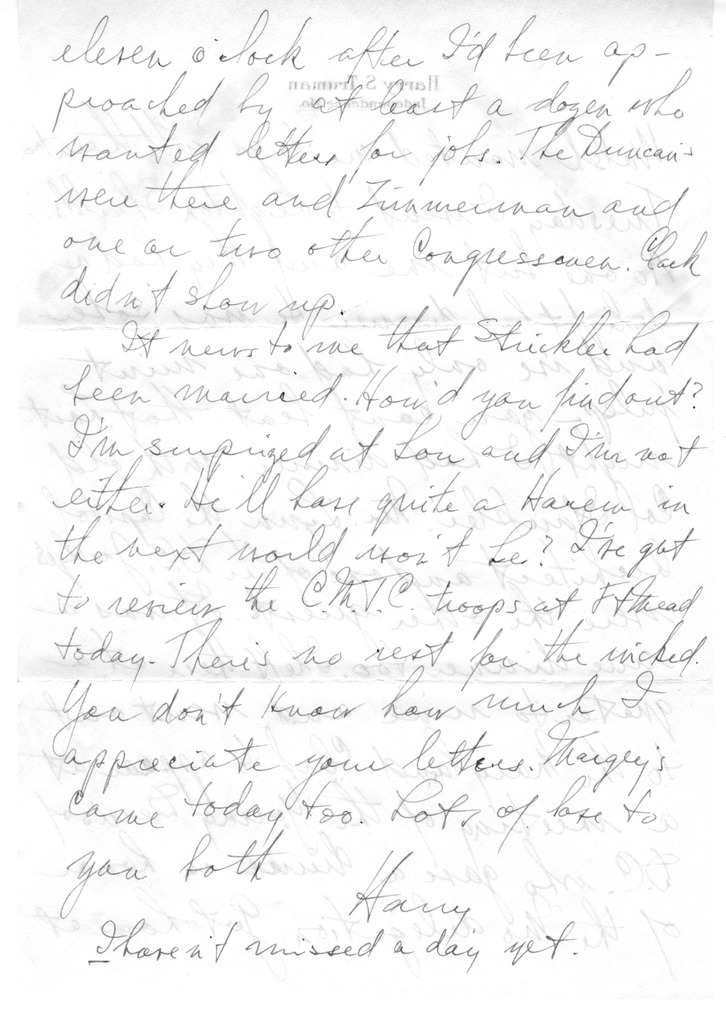 eleven o'clock after I'd been ap-
proached by at least a dozen who
wanted letters for jobs. The Duncans
were there and Zimmerman and
one or two other Congressmen. Clark
didn't show up.
It news to me that Strickler had
been married. How'd you find out?
I'm surprized at Lou and I'm not
either. He'll have quite a Harem in
the next world won't he? I've got
to review the C.M.T.C. troops at Ft Mead
today. There's no rest for the wicked.
You don't know how much I
appreciate your letters. Margey's
came today too. Lots of love to
you both
Harry
I haven't missed a day yet.
Harry S. Truman